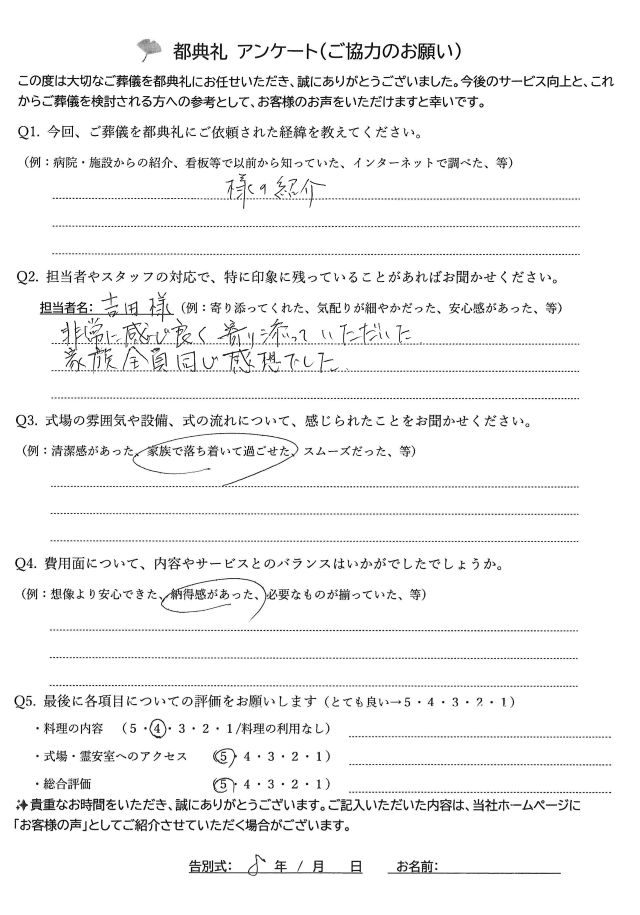 都典礼 アンケート（ご協力のお願い）
この度は大切なご葬儀を都典礼にお任せいただき、誠にありがとうございました。今後のサービス向上と、これ
からご葬儀を検討される方への参考として、お客様のお声をいただけますと幸いです。
Q1. 今回、ご葬儀を都典礼にご依頼された経緯を教えてください。
（例：病院・施設からの紹介、看板等で以前から知っていた、インターネットで調べた、等）
様の紹介
Q2. 担当者やスタッフの対応で、特に印象に残っていることがあればお聞かせください。
担当者名： 吉田様 （例：寄り添ってくれた、気配りが細やかだった、安心感があった、等）
非常に感じ良く寄り添っていただいた
家族全員同じ感想でした。
Q3. 式場の雰囲気や設備、式の流れについて、感じられたことをお聞かせください。
（例：清潔感があった、家族で落ち着いて過ごせた、スムーズだった、等）
Q4. 費用面について、内容やサービスとのバランスはいかがでしたでしょうか。
（例：想像より安心できた、納得感があった、必要なものが揃っていた、等）
Q5. 最後に各項目についての評価をお願いします（とても良い→５・４・３・２・１）
・料理の内容 （５・４・３・２・１/料理の利用なし）
・式場・霊安室へのアクセス （５・４・３・２・１）
・総合評価 （５・４・３・２・１）
貴重なお時間をいただき、誠にありがとうございます。ご記入いただいた内容は、当社ホームページに
「お客様の声」としてご紹介させていただく場合がございます。
告別式： 8 年 / 月 日 お名前：